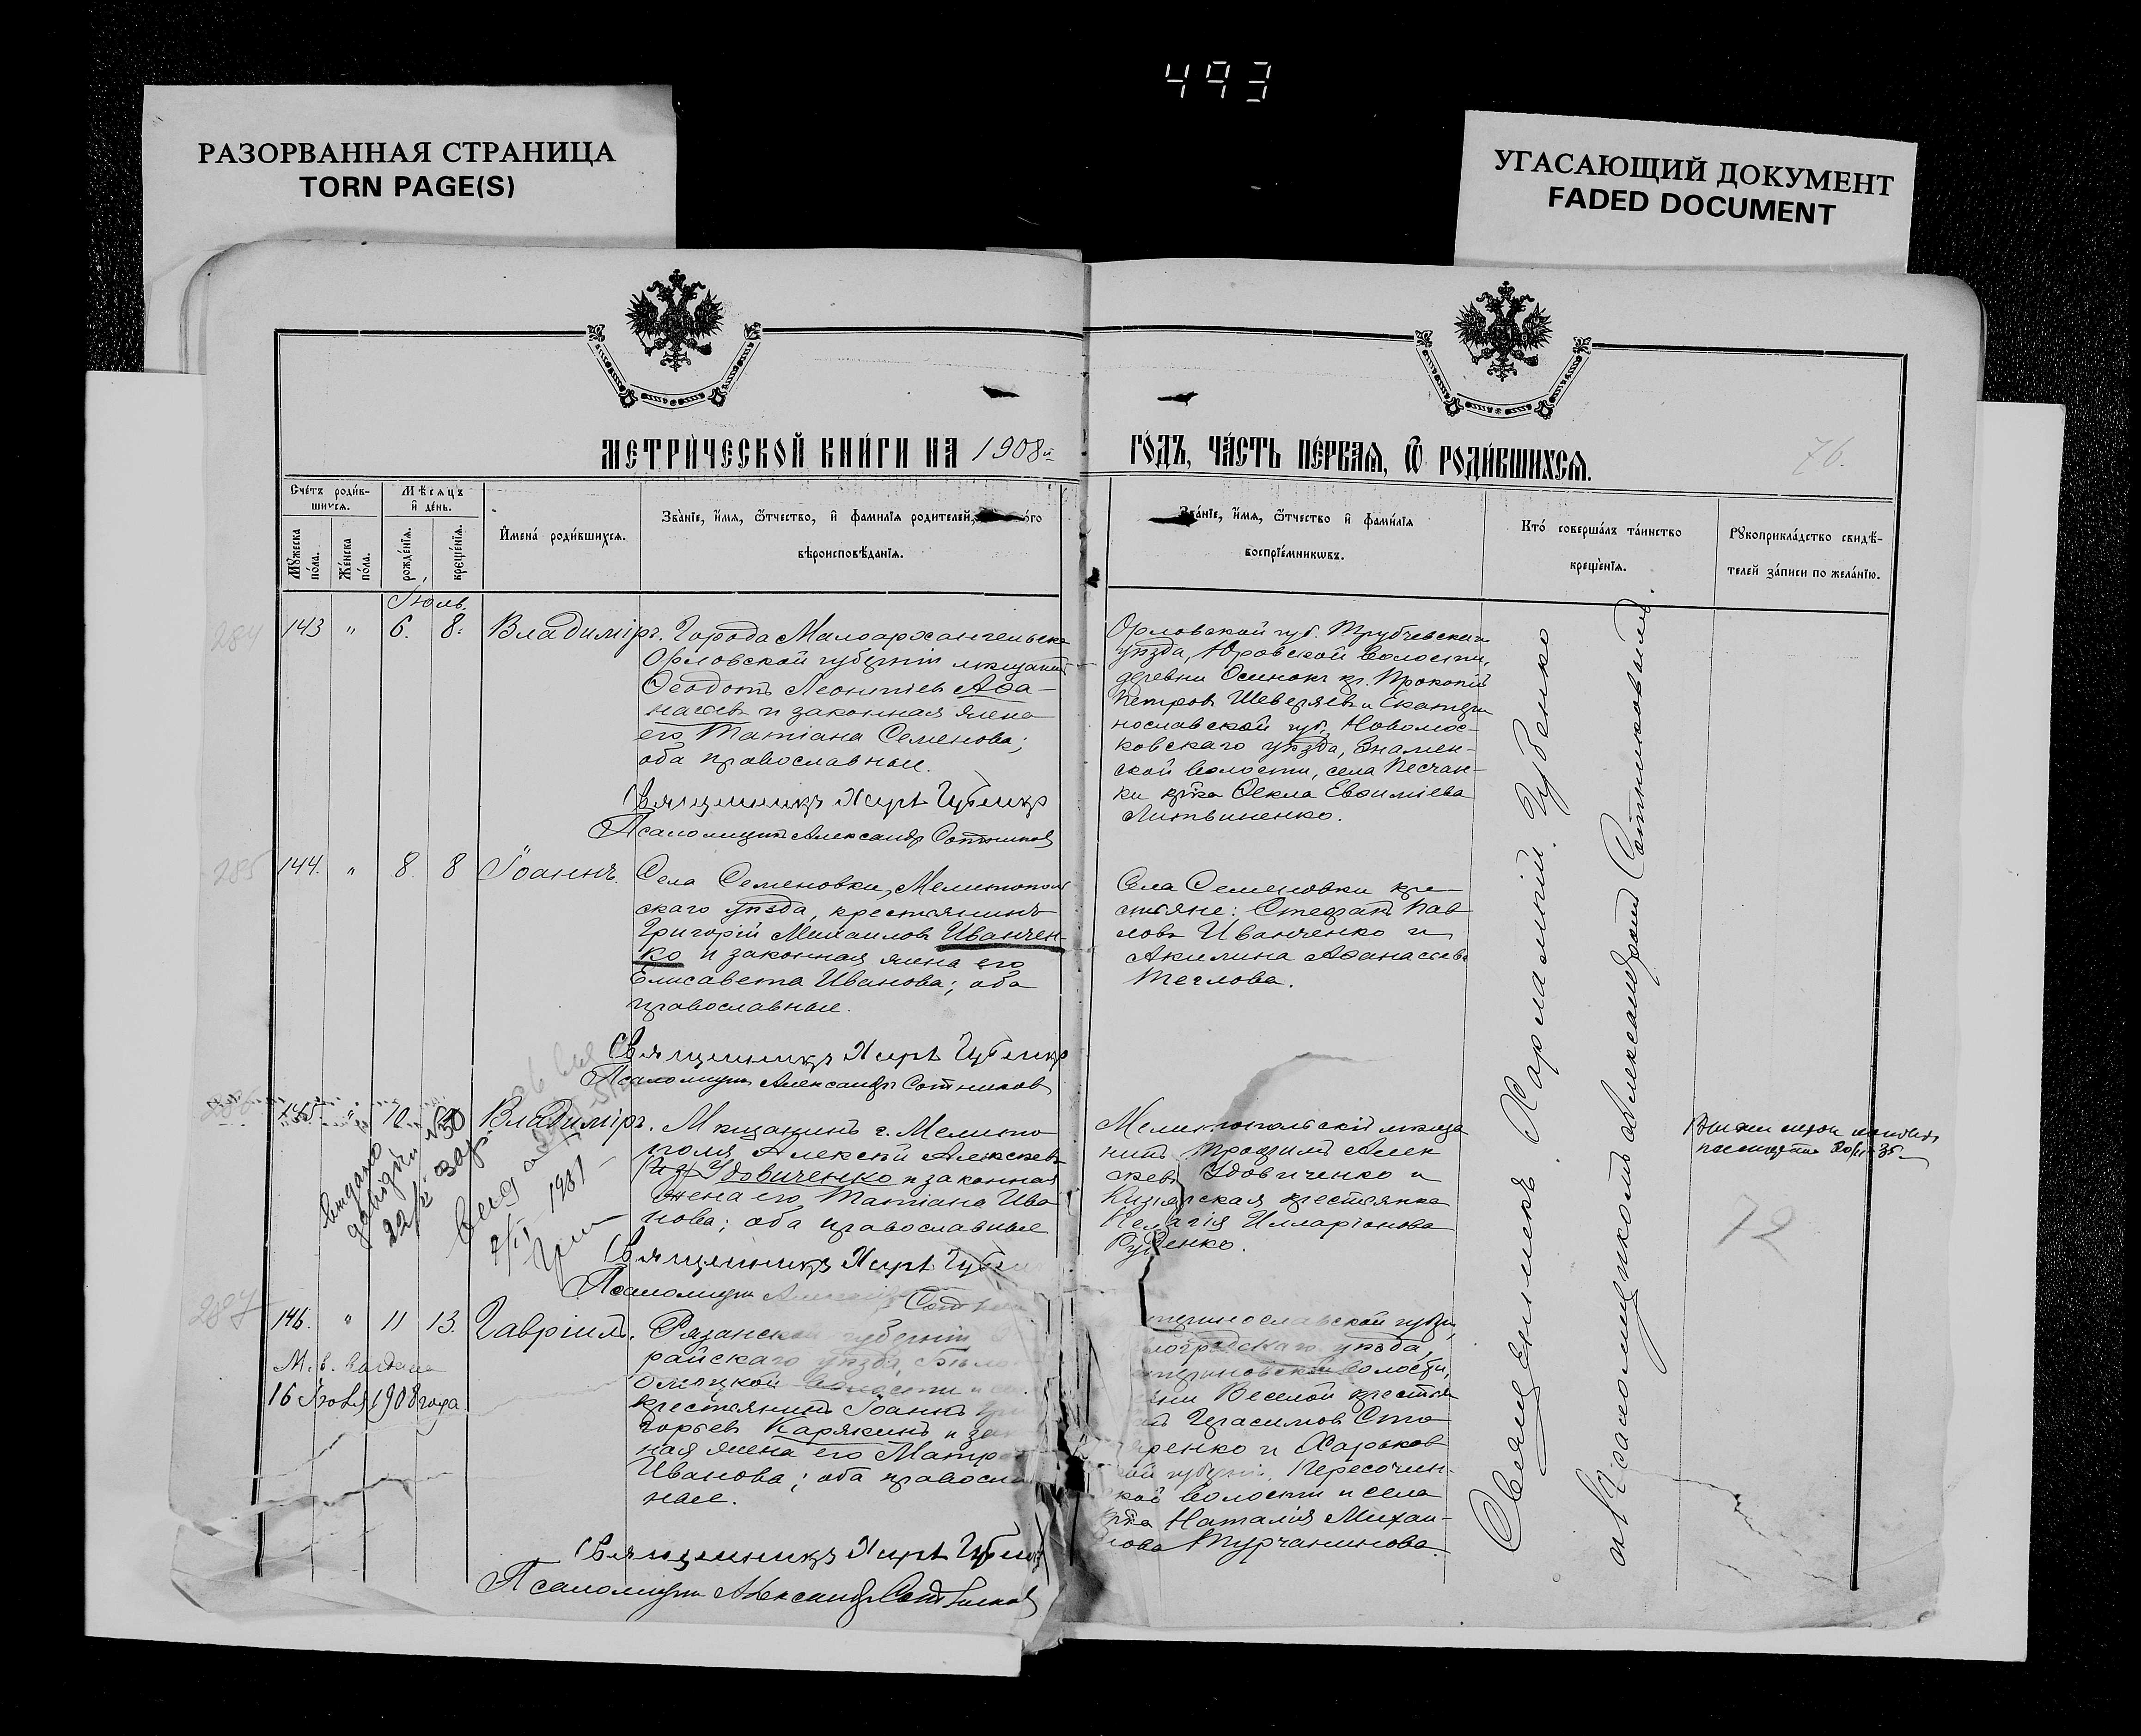 493
РАЗОРВАННАЯ СТРАНИЦА
TORN PAGE(S)
УГАСАЮЩИЙ ДОКУМЕНТ
FADED DOCUMENT
МЕТРИ́ЧЕСКОЙ КНИ́ГИ НА 1908й
ГО́ДЪ, ЧА́СТЬ ПЕ́РВАѦ, Ѿ РОДИ́ВШИХСѦ.
76.
Сче́тъ роди́в-
шихсѧ.
Мѣ́сѧцъ
и҆ де́нь.
Мꙋ́жеска
по́ла.
Же́нска
по́ла.
рожде́нїѧ.
креще́нїѧ.
И҆мена̀ роди́вшихсѧ.
Зва́нїе, и҆́мѧ, ѻ҆́тчество, и҆ фамилїѧ родителей,
вѣроисповѣ́данїѧ.
Зва́нїе, и҆́мѧ, ѻ҆́тчество и҆ фами́лїѧ
воспрїе́мникѡвъ.
Кто̀ соверша́лъ та́инство
креще́нїѧ.
Рꙋкоприкла́дство свидѣ́-
телей за́писи по жела́нїю.
Іюль.
284
143 " 6. 8. Владиміръ.
Города Малоархангельска
Орловской губерніи мѣщанинъ
Ѳеодотъ Леонтіевъ Аѳа-
насьевъ и законная жена
его Татіана Семенова;
оба православные.
Священникъ Харл. Губенко
Псаломщикъ Александръ Сотниковъ
Орловской губ. Трубчевскаго
уѣзда, Юровской волости,
деревни Осинокъ кр. Прокопій
Петровъ Шеверяевъ и Екатери
нославской губ., Новомос-
ковскаго уѣзда, Знамен-
ской волости, села Песчан-
ки кр‐ка Ѳекла Евѳиміева
Литвиненко.
285
144. " 8. 8 Іоаннъ.
Села Семеновки, Мелитополь
скаго уѣзда, крестьянинъ
Григорій Михаиловъ Иванчен-
ко и законная жена его
Елисавета Иванова; оба
православные.
Священникъ Харл. Губенко
Псаломщикъ Александръ Сотниковъ
Села Семеновки кре-
стьяне: Стефанъ Пав
ловъ Иванченко и
Акилина Аѳанасьева
Теглова.
286
145. " 10. Владиміръ.
Мѣщанинъ г. Мелито
поля Алексѣй Алексѣевъ
Удовиченко и законная
жена его Татіана Ива
нова; оба православные
Священникъ Харл. Губен
Псаломщикъ
Мелитопольскій мѣща
нинъ Трофимъ Алек
сѣевъ Удовиченко и
Кизіярская крестьянка
Пелагія Илларіонова
Руденко.
Видано
довідки
22/
1931
72
287
146. " 11 13. Гавріилъ.
М. в. выдана
16 Іюля 1908 года
Рязанской губерніи
райскаго уѣзда, Бѣло
волости и села
крестьянинъ Іоаннъ Гри
горьевъ Карякинъ и зак
ная жена его Матро
Иванова; оба правосла
ные.
Священникъ Харл. Губенко
Псаломщикъ Александръ Сотниковъ
теринославской губ.,
лоградскаго уѣзда,
волости,
Веселой крестья
Герасимовъ Сто
ренко и Харьков
ской губерніи, Пересочин-
кой волости и села
Наталія Михаи-
лова Турчанинова.
Священникъ Харлампій Губенко
съ Псаломщикомъ Александромъ Сотниковымъ.